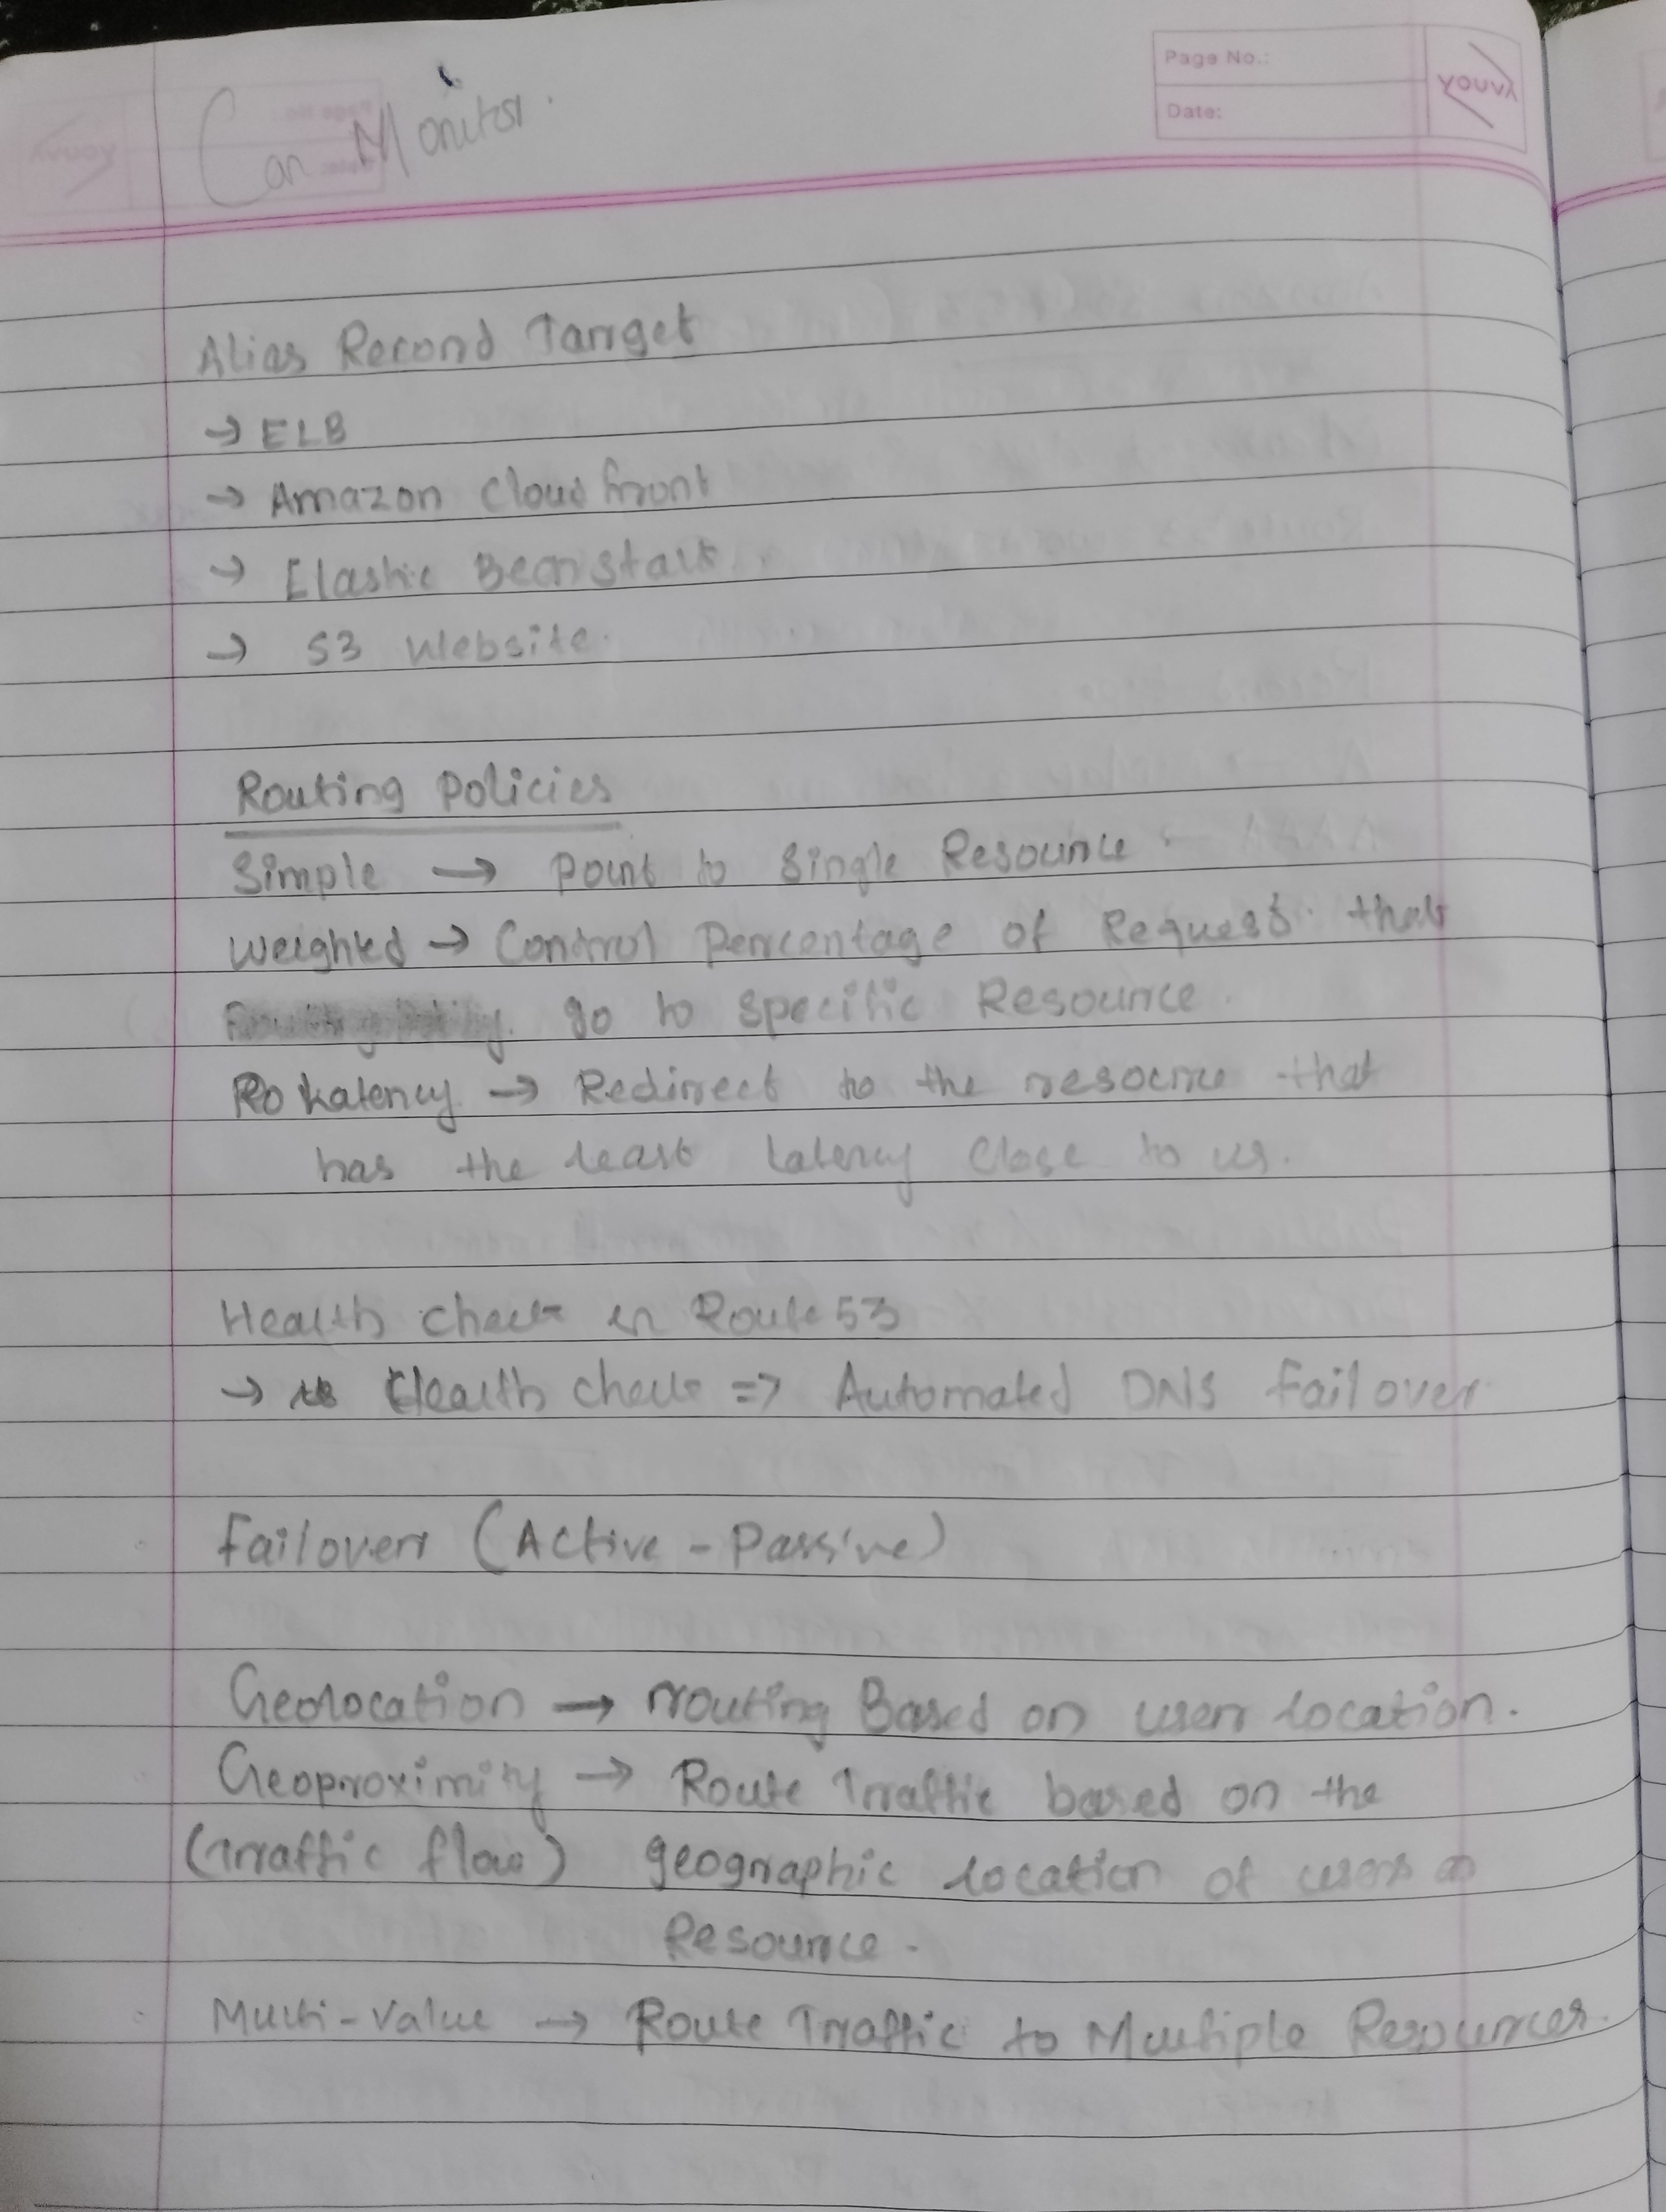 Page No.:
Date:
YOUVA
Can Monitor.
Alias Record Target
→ ELB
→ Amazon Cloudfront
→ Elastic Beanstalk.
→ S3 Website.
Routing Policies
Simple → Point to Single Resource
Weighted → Control Percentage of Request that
go to Specific Resource.
Latency → Redirect to the resource that
has the least latency close to us.
Health check in Route 53
→ Health check => Automated DNS Failover
Failover (Active - Passive)
Geolocation → routing Based on user location.
Geoproximity → Route Traffic based on the
(Traffic flow) geographic location of users
Resource.
Multi-Value → Route Traffic to Multiple Resources.